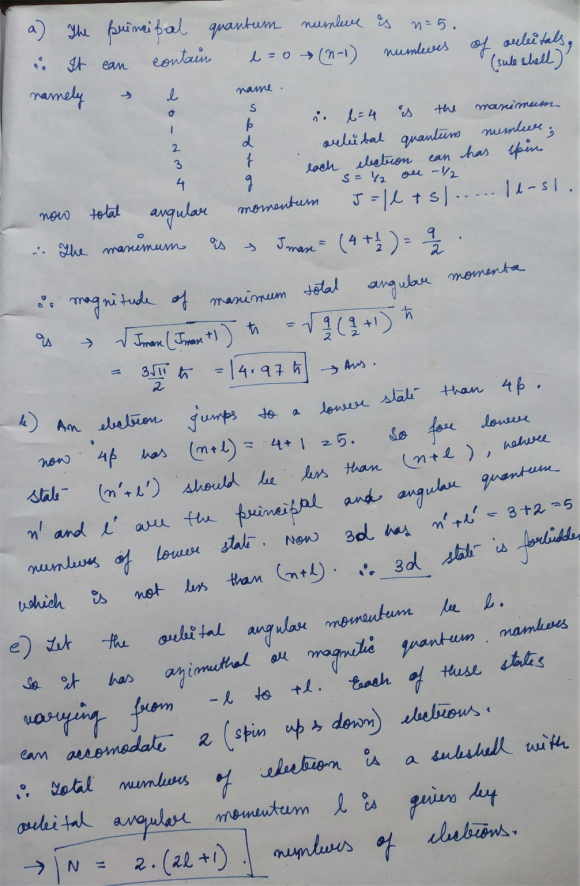 a) The principal quantum number is n=5.
∴ It can contain l=0 → (n-1) numbers of orbitals,
(subshell)
namely → l name.
0 s
1 p
2 d
3 f
4 g
∴ l=4 is the maximum
orbital quantum number;
each electron can has spin
s = 1/2 or -1/2
now total angular momentum J = |l+s| ..... |l-s|.
∴ The maximum is → Jmax = (4+1/2) = 9/2.
∴ magnitude of maximum total angular momenta
is → √(Jmax(Jmax+1)) ħ = √(9/2(9/2+1)) ħ
= 3√11/2 ħ = 4.97 ħ → Ans.
b) An electron jumps to a lower state than 4p.
now 4p has (n+l) = 4+1 = 5. So for lower
state (n'+l') should be less than (n+l), where
n' and l' are the principal and angular quantum
numbers of lower state. Now 3d has n'+l' = 3+2 = 5
which is not less than (n+l). ∴ 3d state is forbidden
e) Let the orbital angular momentum be l.
So it has azimuthal or magnetic quantum numbers
varying from -l to +l. Each of these states
can accomodate 2 (spin up & down) electrons.
∴ Total numbers of electron is a subshell with
orbital angular momentum l is given by
→ N = 2.(2l+1). numbers of electrons.